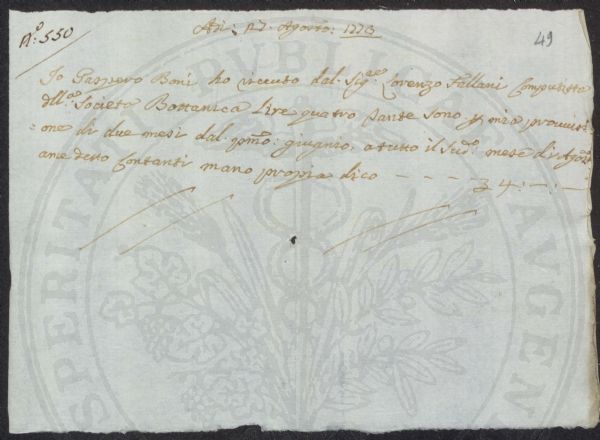 N.º 550
Adi: 27. Agosto: 1773
49
Io Gaspero Boni ho riceuto dal Sig.re Lorenzo Fallani Computista
dll.a Società Bottanica Lire quatro Sante Sono p mia prouuisi
one di due mesi dal pmo: giugnio, a tutto il Sud.o mese di Agos.
ame detto Contanti mano propia dico - - - - £ 4: -: -
PROSPERITATI PUBLICAE AUGENDAE